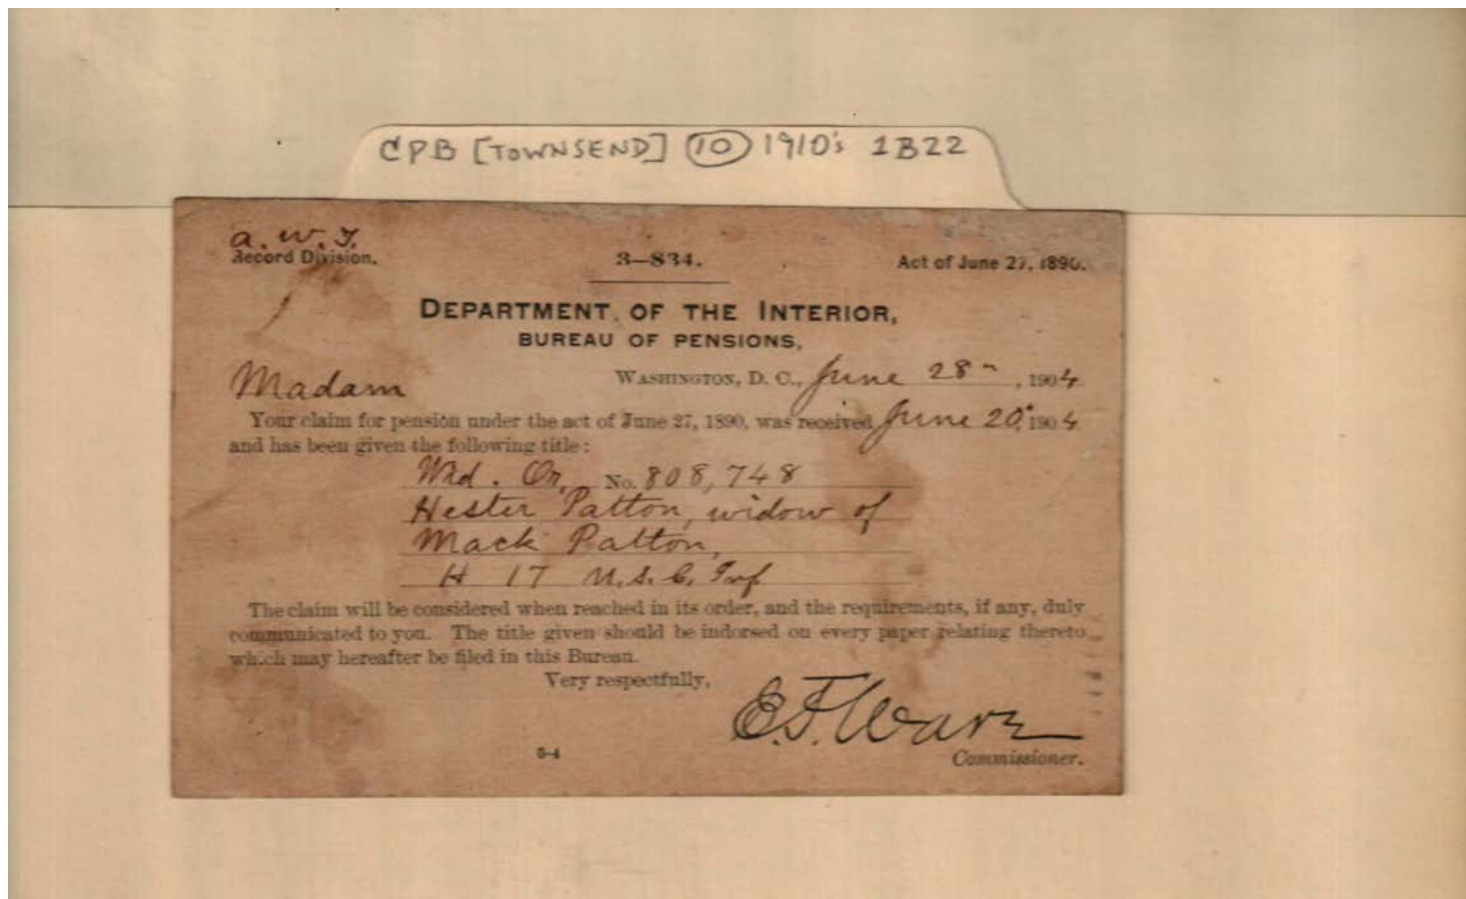 CPB [TOWNSEND] (10) 1910's 1B22
a. w. F.
Record Division.
3—834.
Act of June 27, 1890.
DEPARTMENT OF THE INTERIOR,
BUREAU OF PENSIONS,
WASHINGTON, D. C., June 28", 1904
Madam
Your claim for pension under the act of June 27, 1890, was received June 20", 1904
and has been given the following title:
Wid. Or. No. 808,748
Hester Patton, widow of
Mack Patton,
H 17 U.S.C. Inf
The claim will be considered when reached in its order, and the requirements, if any, duly
communicated to you. The title given should be indorsed on every paper relating thereto
which may hereafter be filed in this Bureau.
Very respectfully,
E. F. Ware
Commissioner.